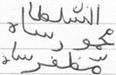 السلطا
محمود ساه
مظفر ساه